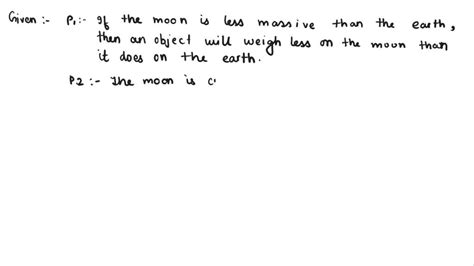 Given :- P1:- If the moon is less massive than the earth,
then an object will weigh less on the moon than
it does on the earth.
P2 :- The moon is c